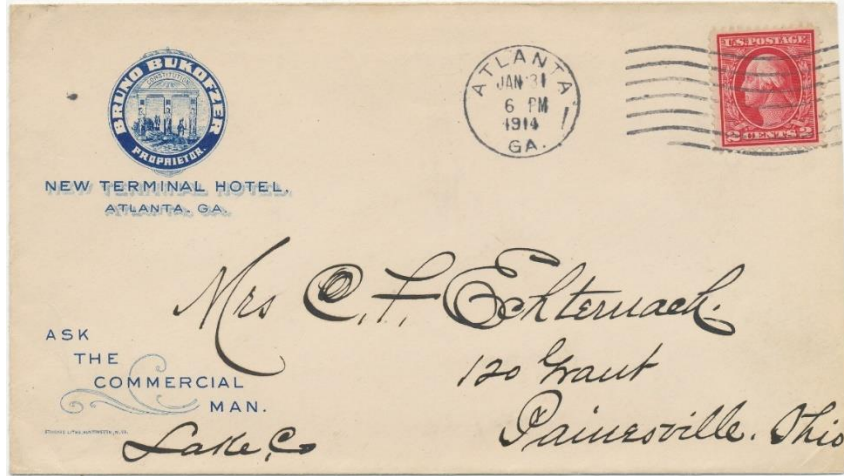 BRUNO BUKOFZER
CONSTITUTION
PROPRIETOR.
NEW TERMINAL HOTEL.
ATLANTA, GA.
ATLANTA
JAN 31
6 PM
1914
GA.
U.S. POSTAGE
2 CENTS 2
Mrs C. F. Echternach.
120 Grant
Painesville. Ohio
Lake Co
ASK
THE
COMMERCIAL
MAN.